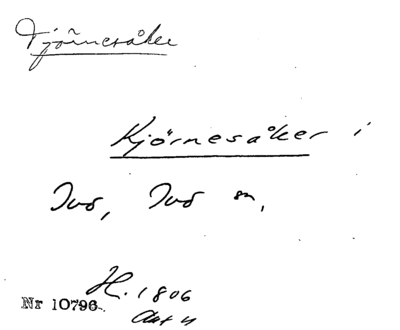 Tjörnesåker
Kjörnesåker i
Ivo, Ivo sn.
H. 1806
Akt 4
Nr 10796.